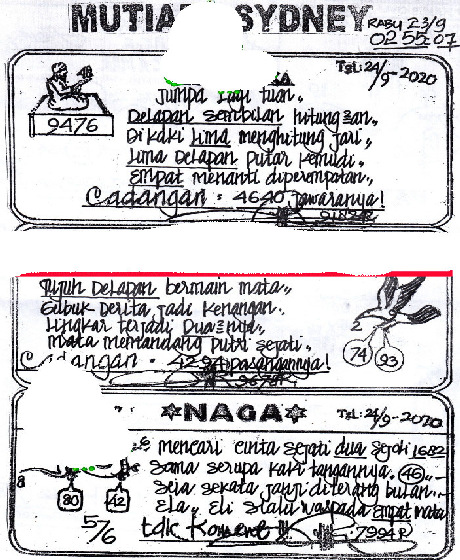 MUTIA SYDNEY
RABU 23/9
02 55 07
TGL: 24/9-2020
Jumpa lagi tuan..
Delapan sembilan hitungan..
9476
Di kaki lima menghitung jari,,
Lima Delapan putar kemudi..
Empat menanti diperempatan,,
Cadangan : 4640 jawaranya!
Tujuh Delapan bermain mata,,
Seribuk Derita jadi kenangan..
Lingkar terjadi Dua
Mata memandang putri sejati..
2
74 93
dangan : 4294 pasangannya!
NAGA
TGL: 24/9-2020
mencari cinta sejati dua sejoli 1682
Sama serupa kaki tangannya. 46..
8
Seia sekata janji diterang bulan...
80 42
Ela.. Eli selalu waspada empat mata
5/6
tdk Koment
7994 P